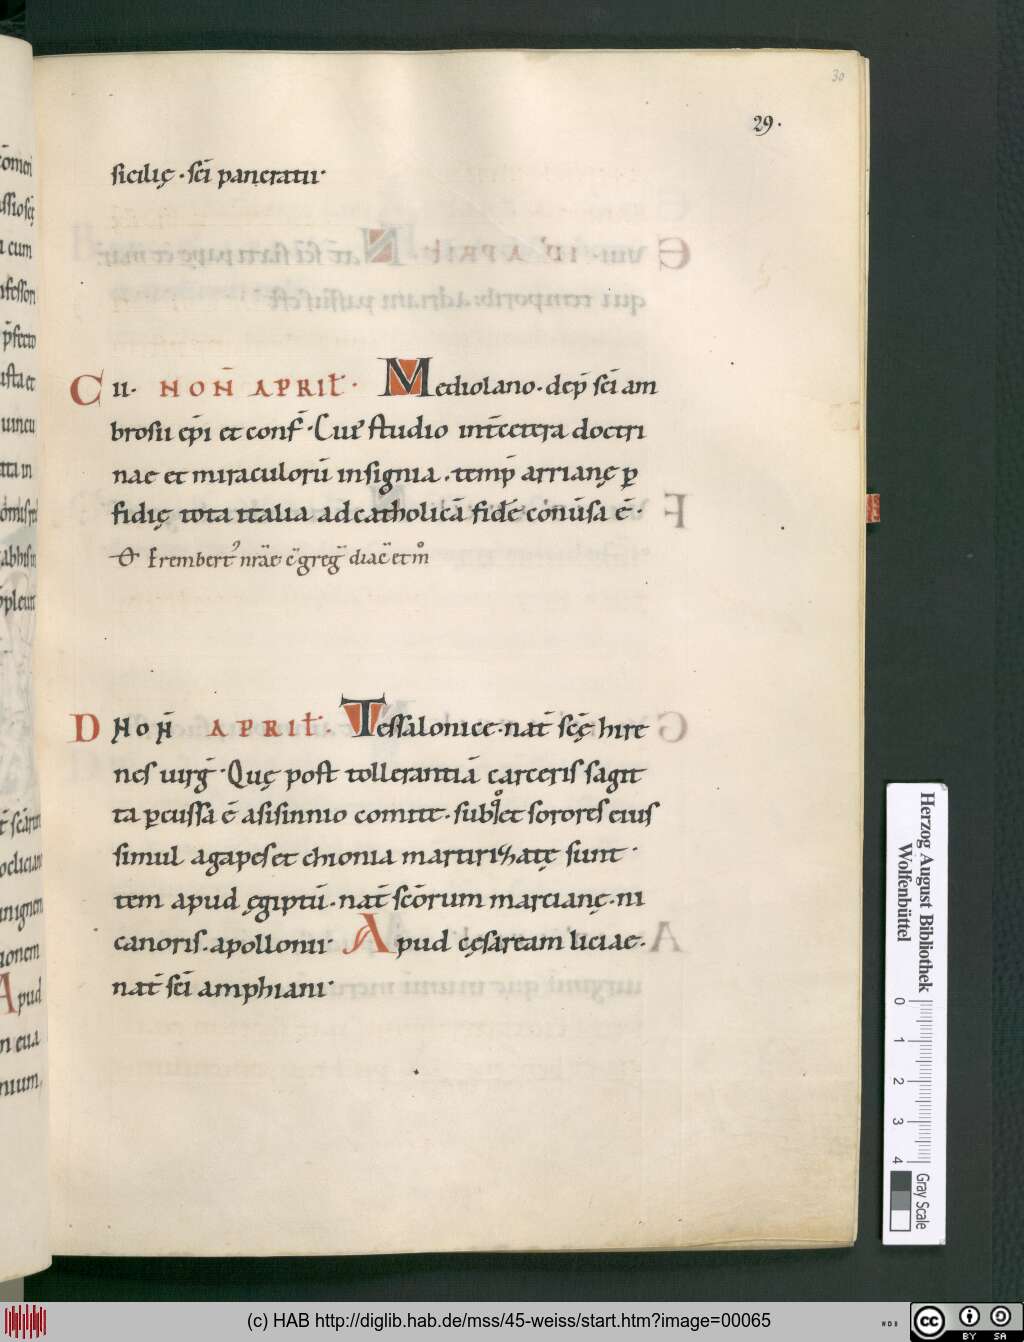 30
29.
sicilię · sc̄i pancratii·
C II· NON̄ APRIL̄· Mediolano· dep̄ sc̄i am
brosii ep̄i et conf̄· Cui᷒ studio int̄cetera doctri
nae et miraculorū insignia· temp̄ arrianę ꝑ
fidię tota italia ad catholicā fidē conūsa ē·
Erembert᷒ nr̄ae c̄greg̅ diac̄ et m̊
D NON̄ APRIL̄· Tessalonice· nat̄ sc̄ę hire
nes uirg̅· Quę post tollerantiā carceris sagit
ta ꝑcussa ē asisinnio comite· sub q̊ et sorores eius
simul agapes et chionia martirizatę sunt·
tem apud ęgiptū· nat̄ sc̄orum marcianę· ni
canoris· apollonii· Apud cęsaream liciae·
nat̄ sc̄i amphiani·
Herzog August Bibliothek
Wolfenbüttel
0 1 2 3 4
Gray Scale
(c) HAB http://diglib.hab.de/mss/45-weiss/start.htm?image=00065
cc BY SA